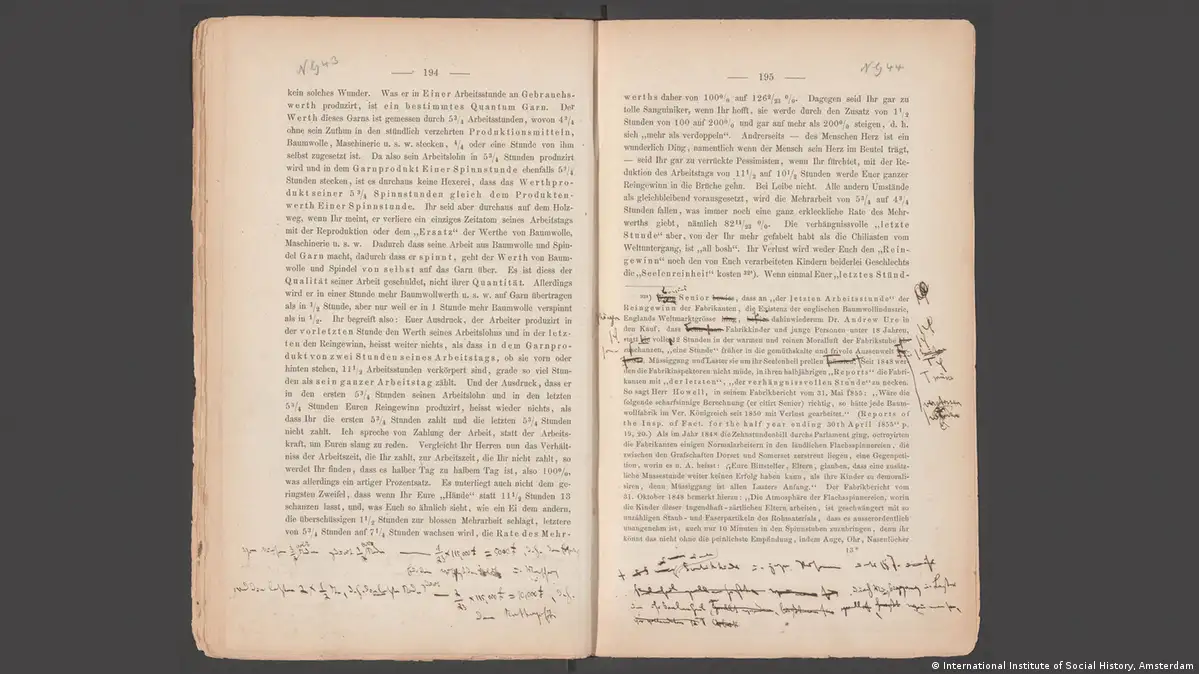 — 194 —
kein solches Wunder. Was er in Einer Arbeitsstunde an Gebrauchs-
werth produzirt, ist ein bestimmtes Quantum Garn. Der
Werth dieses Garns ist gemessen durch 5³/₄ Arbeitsstunden, wovon 4³/₄
ohne sein Zuthun in den stündlich verzehrten Produktionsmitteln,
Baumwolle, Maschinerie u. s. w. stecken, ⁴/₄ oder eine Stunde von ihm
selbst zugesetzt ist. Da also sein Arbeitslohn in 5³/₄ Stunden produzirt
wird und in dem Garnprodukt Einer Spinnstunde ebenfalls 5³/₄
Stunden stecken, ist es durchaus keine Hexerei, dass das Werthpro-
dukt seiner 5³/₄ Spinnstunden gleich dem Produkten-
werth Einer Spinnstunde. Ihr seid aber durchaus auf dem Holz-
weg, wenn Ihr meint, er verliere ein einziges Zeitatom seines Arbeitstags
mit der Reproduktion oder dem „Ersatz“ der Werthe von Baumwolle,
Maschinerie u. s. w. Dadurch dass seine Arbeit aus Baumwolle und Spin-
del Garn macht, dadurch dass er spinnt, geht der Werth von Baum-
wolle und Spindel von selbst auf das Garn über. Es ist diess der
Qualität seiner Arbeit geschuldet, nicht ihrer Quantität. Allerdings
wird er in einer Stunde mehr Baumwollwerth u. s. w. auf Garn übertragen
als in ¹/₂ Stunde, aber nur weil er in 1 Stunde mehr Baumwolle verspinnt
als in ¹/₂. Ihr begreift also: Euer Ausdruck, der Arbeiter produzirt in
der vorletzten Stunde den Werth seines Arbeitslohns und in der letz-
ten den Reingewinn, heisst weiter nichts, als dass in dem Garnpro-
dukt von zwei Stunden seines Arbeitstags, ob sie vorn oder
hinten stehen, 11¹/₂ Arbeitsstunden verkörpert sind, grade so viel Stun-
den als sein ganzer Arbeitstag zählt. Und der Ausdruck, dass er
in den ersten 5³/₄ Stunden seinen Arbeitslohn und in den letzten
5³/₄ Stunden Euren Reingewinn produzirt, heisst wieder nichts, als
dass Ihr die ersten 5³/₄ Stunden zahlt und die letzten 5³/₄ Stunden
nicht zahlt. Ich spreche von Zahlung der Arbeit, statt der Arbeits-
kraft, um Euren slang zu reden. Vergleicht Ihr Herren nun das Verhält-
niss der Arbeitszeit, die Ihr zahlt, zur Arbeitszeit, die Ihr nicht zahlt, so
werdet Ihr finden, dass es halber Tag zu halbem Tag ist, also 100%,
was allerdings ein artiger Prozentsatz. Es unterliegt auch nicht dem ge-
ringsten Zweifel, dass wenn Ihr Eure „Hände“ statt 11¹/₂ Stunden 13
schanzen lasst, und, was Euch so ähnlich sieht, wie ein Ei dem andern,
die überschüssigen 1¹/₂ Stunden zur blossen Mehrarbeit schlagt, letztere
von 5³/₄ Stunden auf 7¹/₄ Stunden wachsen wird, die Rate des Mehr-
— 195 —
werths daher von 100% auf 126²/₂₃ %. Dagegen seid Ihr gar zu
tolle Sanguiniker, wenn Ihr hofft, sie werde durch den Zusatz von 1¹/₂
Stunden von 100 auf 200% und gar auf mehr als 200% steigen, d. h.
sich „mehr als verdoppeln“. Andrerseits — des Menschen Herz ist ein
wunderlich Ding, namentlich wenn der Mensch sein Herz im Beutel trägt,
— seid Ihr gar zu verrückte Pessimisten, wenn Ihr fürchtet, mit der Re-
duktion des Arbeitstags von 11¹/₂ auf 10¹/₂ Stunden werde Euer ganzer
Reingewinn in die Brüche gehn. Bei Leibe nicht. Alle andern Umstände
als gleichbleibend vorausgesetzt, wird die Mehrarbeit von 5³/₄ auf 4³/₄
Stunden fallen, was immer noch eine ganz erkleckliche Rate des Mehr-
werths giebt, nämlich 82¹⁴/₂₃ %. Die verhängnissvolle „letzte
Stunde“ aber, von der Ihr mehr gefabelt habt als die Chiliasten vom
Weltuntergang, ist „all bosh“. Ihr Verlust wird weder Euch den „Rein-
gewinn“ noch den von Euch verarbeiteten Kindern beiderlei Geschlechts
die „Seelenreinheit“ kosten ³²ᵃ). Wenn einmal Euer „letztes Stünd-
³²ᵃ) Senior, dass an „der letzten Arbeitsstunde“ der
Reingewinn der Fabrikanten, die Existenz der englischen Baumwollindustrie,
Englands Weltmarktgrösse dahinwiederum Dr. Andrew Ure in
den Kauf, dass Fabrikkinder und junge Personen unter 18 Jahren,
volle 12 Stunden in der warmen und reinen Moralluft der Fabrikstube
„eine Stunde“ früher in die gemüthskalte und frivole Aussenwelt
Müssiggang und Laster sie um ihr Seelenheil prellen Seit 1848 wer-
den die Fabrikinspektoren nicht müde, in ihren halbjährigen „Reports“ die Fabri-
kanten mit „der letzten“, „der verhängnissvollen Stunde“ zu necken.
So sagt Herr Howell, in seinem Fabrikbericht vom 31. Mai 1855: „Wäre die
folgende scharfsinnige Berechnung (er citirt Senior) richtig, so hätte jede Baum-
wollfabrik im Ver. Königreich seit 1850 mit Verlust gearbeitet.“ (Reports of
the Insp. of Fact. for the half year ending 30th April 1855“ p.
19, 20.) Als im Jahr 1848 die Zehnstundenbill durchs Parlament ging, octroyirten
die Fabrikanten einigen Normalarbeitern in den ländlichen Flachsspinnereien, die
zwischen den Grafschaften Dorset und Somerset zerstreut liegen, eine Gegenpeti-
tion, worin es u. A. heisst: „Eure Bittsteller, Eltern, glauben, dass eine zusätz-
liche Mussestunde weiter keinen Erfolg haben kann, als ihre Kinder zu demorali-
siren, denn Müssiggang ist allen Lasters Anfang.“ Der Fabrikbericht vom
31. Oktober 1848 bemerkt hierzu: „Die Atmosphäre der Flachsspinnereien, worin
die Kinder dieser tugendhaft-zärtlichen Eltern arbeiten, ist geschwängert mit so
unzähligen Staub- und Faserpartikeln des Rohmaterials, dass es ausserordentlich
unangenehm ist, auch nur 10 Minuten in den Spinnstuben zuzubringen, denn ihr
könnt das nicht ohne die peinlichste Empfindung, indem Auge, Ohr, Nasenlöcher
13*
© International Institute of Social History, Amsterdam